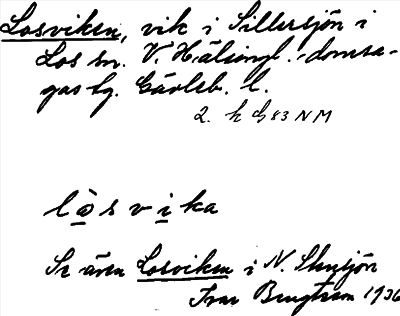 Losviken, vik i Sillersjön i
Los sn. V. Hälsingl.-domsa-
gas tg. Gävleb. l.
2. h G 83 NM
lòsvika
Se även Losviken i N. Skysjön
Ivar Bengtsson 1936